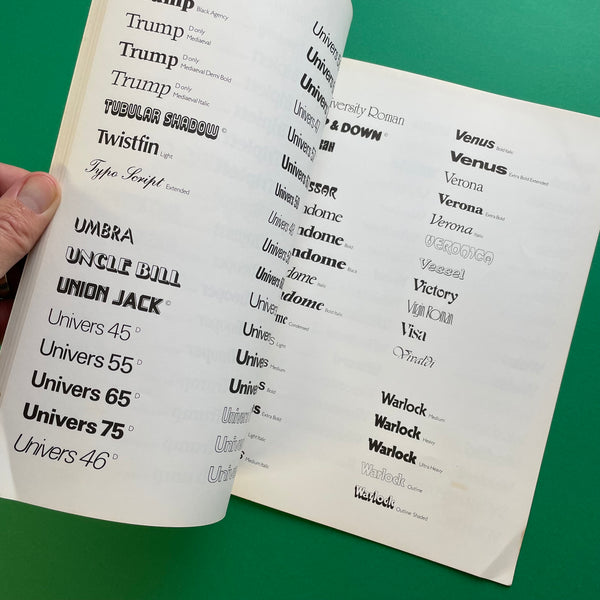 Trump Black Agency
Trump D only Mediaeval
Trump D only Mediaeval Demi Bold
Trump D only Mediaeval Italic
TUBULAR SHADOW ©
Twistfin Light
Typo Script Extended
UMBRA
UNCLE BILL
UNION JACK ©
Univers 45 D
Univers 55 D
Univers 65 D
Univers 75 D
Univers 46 D
Univers
Univers
Univers
Univers 47
Univers
Univers
Univers 59
Univers 48
Univers
Univers
Univers
Univers
Univers
Univers
Univers
Univers
Univers
versity Roman
& DOWN ©
Bold
Black
Bold Italic
Condensed
Light
Medium
Bold
Extra Bold
Light Italic
Medium Italic
Venus Bold Italic
Venus Extra Bold Extended
Verona
Verona Extra Bold
Verona Italic
VERONICA
Vessel
Victory
Virgin Roman
Visa
Vivaldi
Warlock Medium
Warlock Heavy
Warlock Ultra Heavy
Warlock Outline
Warlock Outline Shaded